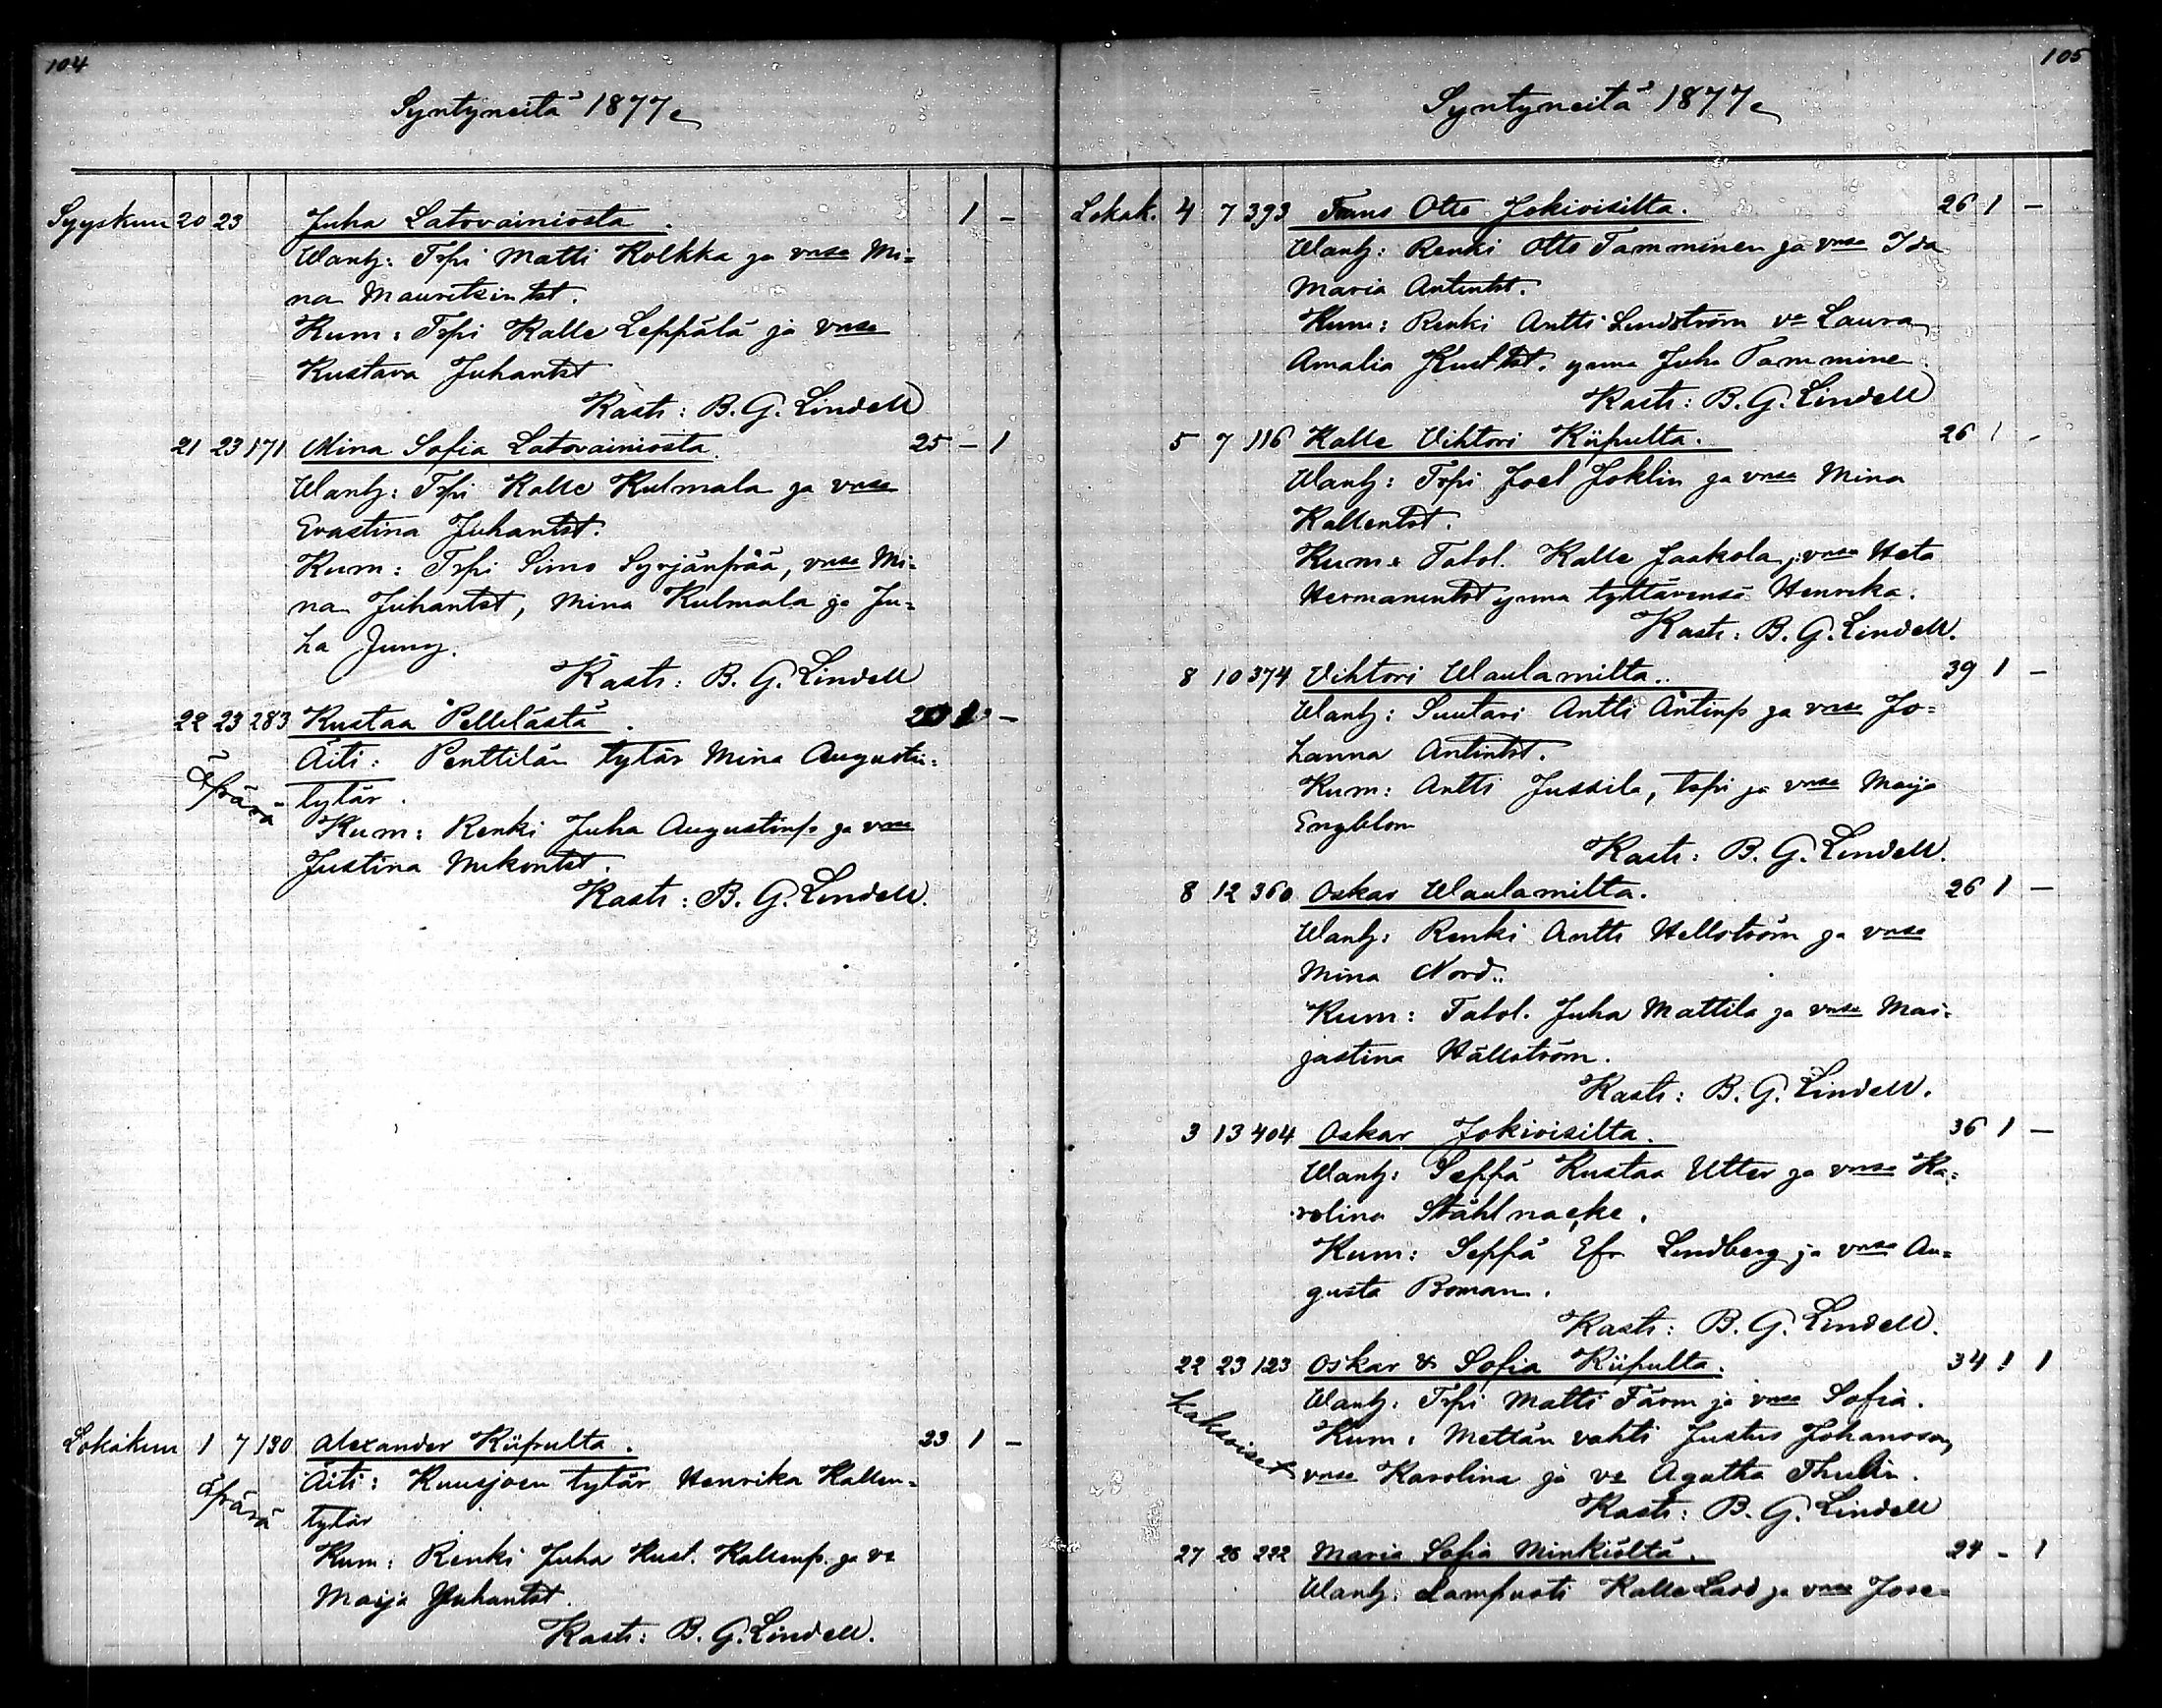 104
Syntyneitä 1877
Syyskuu 20 23 Juha Latovainiosta. 1 –
Wanh: Trpi Matti Kolkka ja vnsa Mi=
na Mauritsintst.
Kum: Trpi Kalle Leppälä ja vnsa
Kustava Juhantst
Kasti: B. G. Lindell
21 23 171 Mina Sofia Latovainiosta. 25 – 1
Wanh: Trpi Kalle Kulmala ja vnsa
Evastina Juhantst.
Kum: Trpi Simo Syrjänpää, vnsa Mi=
na Juhantst, Mina Kulmala ja Ju=
ha Juny.
Kasti: B. G. Lindell
22 23 283 Kustaa Pellelästä. –
Äpärä
Äiti: Penttilän tytär Mina Augustin=
tytär.
Kum: Renki Juha Augustinp. ja vnsa
Justina Mikontst.
Kasti: B. G. Lindell.
Lokakuu 1 7 130 Alexander Kiipulta. 33 1 –
Äpärä
Äiti: Kuusjoen tytär Henrika Kallen=
tytär
Kum: Renki Juha Kust. Kallenp. ja va
Maija Juhantst.
Kasti: B. G. Lindell.
105
Syntyneitä 1877
Lokak. 4 7 393 Frans Otto Jokioisilta. 26 1 –
Wanh: Renki Otto Tamminen ja vnsa Ida
Maria Antintst.
Kum: Renki Antti Lindström va Laura
Amalia Kusttst. ynna Juha Tammine.
Kasti: B. G. Lindell
5 7 116 Kalle Vihtori Kiipulta. 26 1 –
Wanh: Trpi Joel Joklin ja vnsa Mina
Kallentst.
Kum: Talol. Kalle Jaakola, vnsa Heta
Hermanintst ynna tyttärensä Henrika.
Kasti: B. G. Lindell.
8 10 374 Vihtori Waulamilta. 39 1 –
Wanh: Suutari Antti Antinp ja vnsa Jo=
hanna Antintst.
Kum: Antti Jussila, trpi ja vnsa Maija
Engblom
Kasti: B. G. Lindell.
8 12 360 Oskar Waulamilta. 26 1 –
Wanh: Renki Antti Hellström ja vnsa
Mina Nord.
Kum: Talol. Juha Mattila ja vnsa Mai=
jastina Hällström.
Kasti: B. G. Lindell.
3 13 404 Oskar Jokioisilta. 36 1 –
Wanh: Seppä Kustaa Utter ja vnsa Ka=
rolina Ståhlnacke.
Kum: Seppä Efr Lindberg ja vnsa Au=
gusta Boman.
Kasti: B. G. Lindell.
22 23 123 Oskar & Sofia Kiipulta. 34 1 1
Kaksoiset
Wanh: Trpi Matti Färm ja vnsa Sofia.
Kum: Mettän vahti Justus Johansson,
vnsa Karolina ja va Agatha Thulin.
Kasti: B. G. Lindell
27 28 222 Maria Sofia Minkiöltä. 24 – 1
Wanh: Lampuoti Kalle Lard ja vnsa Jose=